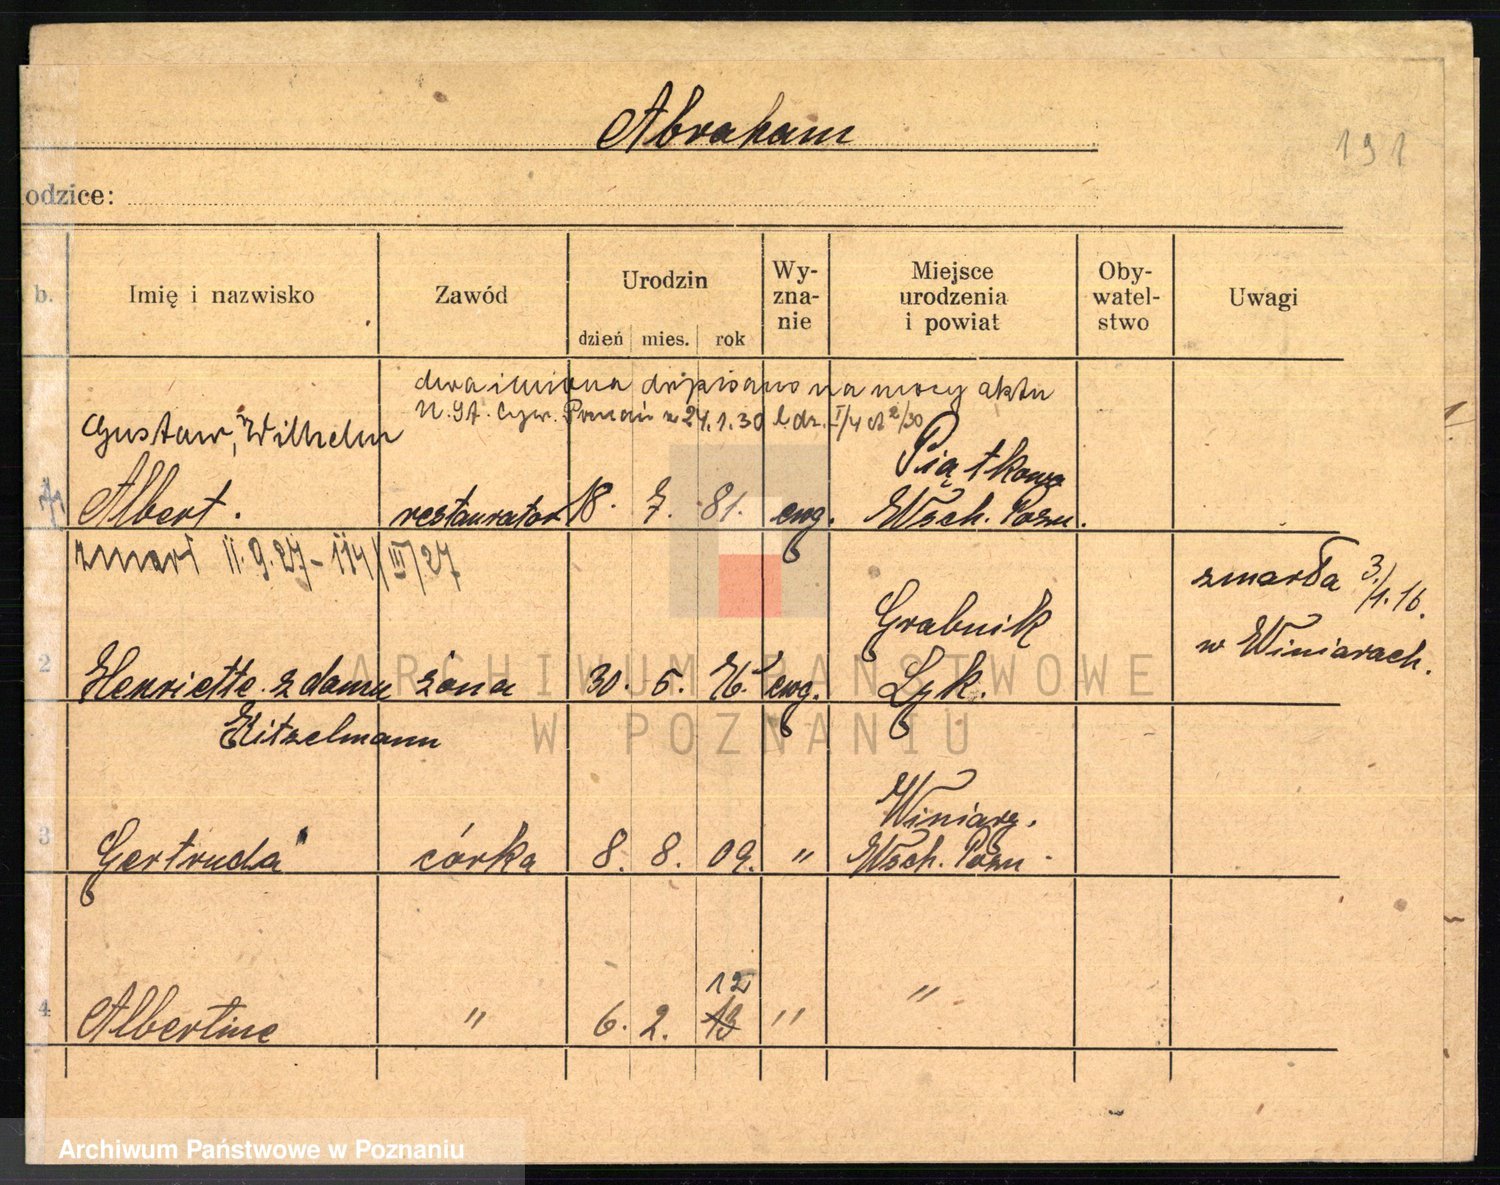 Abraham
191
odzice:
b.
Imię i nazwisko
Zawód
Urodzin
dzień
mies.
rok
Wy-
zna-
nie
Miejsce
urodzenia
i powiat
Oby-
watel-
stwo
Uwagi
dwa imiona dopisano na mocy aktu
U. St. Cyw. Poznań z 24.1.30 l. dz. I/4
Gustaw, Wilhelm
1
Albert.
restaurator
18.
7.
81.
ewg.
Piątkowo
Wsch. Pozn.
zmarł 11.9.27 - 114/III/27
2
Henriette z domu
Kitzelmann
żona
30.
5.
76.
ewg.
Grabnik
Lyk.
zmarła 3./1.16.
w Winiarach.
3
Gertruda
córka
8.
8.
09.
"
Winiary.
Wsch. Pozn.
4
Albertine
"
6.
2.
12
13
"
"
ARCHIWUM PAŃSTWOWE
W POZNANIU
Archiwum Państwowe w Poznaniu